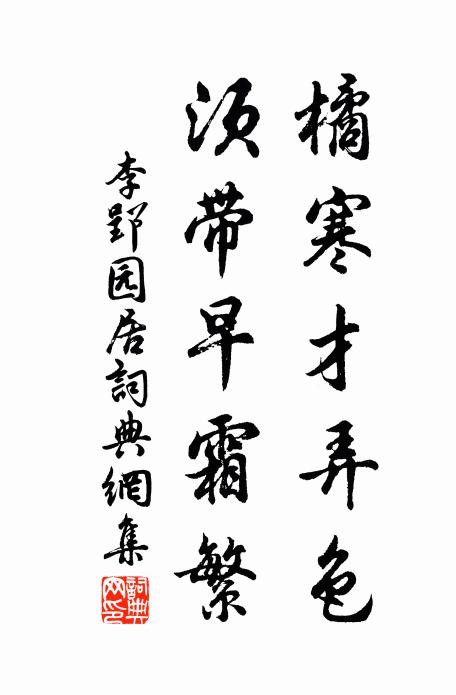 橘寒才弄色
须带早霜繁
李郢园居詞典網集
詞典
网印